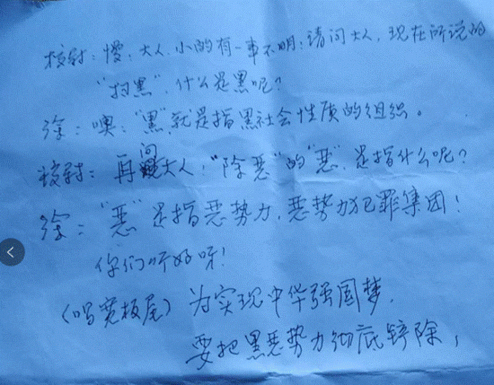 校尉：慢，大人，小的有一事不明；请问大人，现在所说的
"扫黑"，什么是黑呢？
徐：噢："黑"就是指黑社会性质的组织。
校尉：再问大人："除恶"的"恶"，是指什么呢？
徐："恶"是指恶势力，恶势力犯罪集团！
你们听好呀！
（唱宽板尾）为实现中华强国梦，
要把黑恶势力彻底铲除，